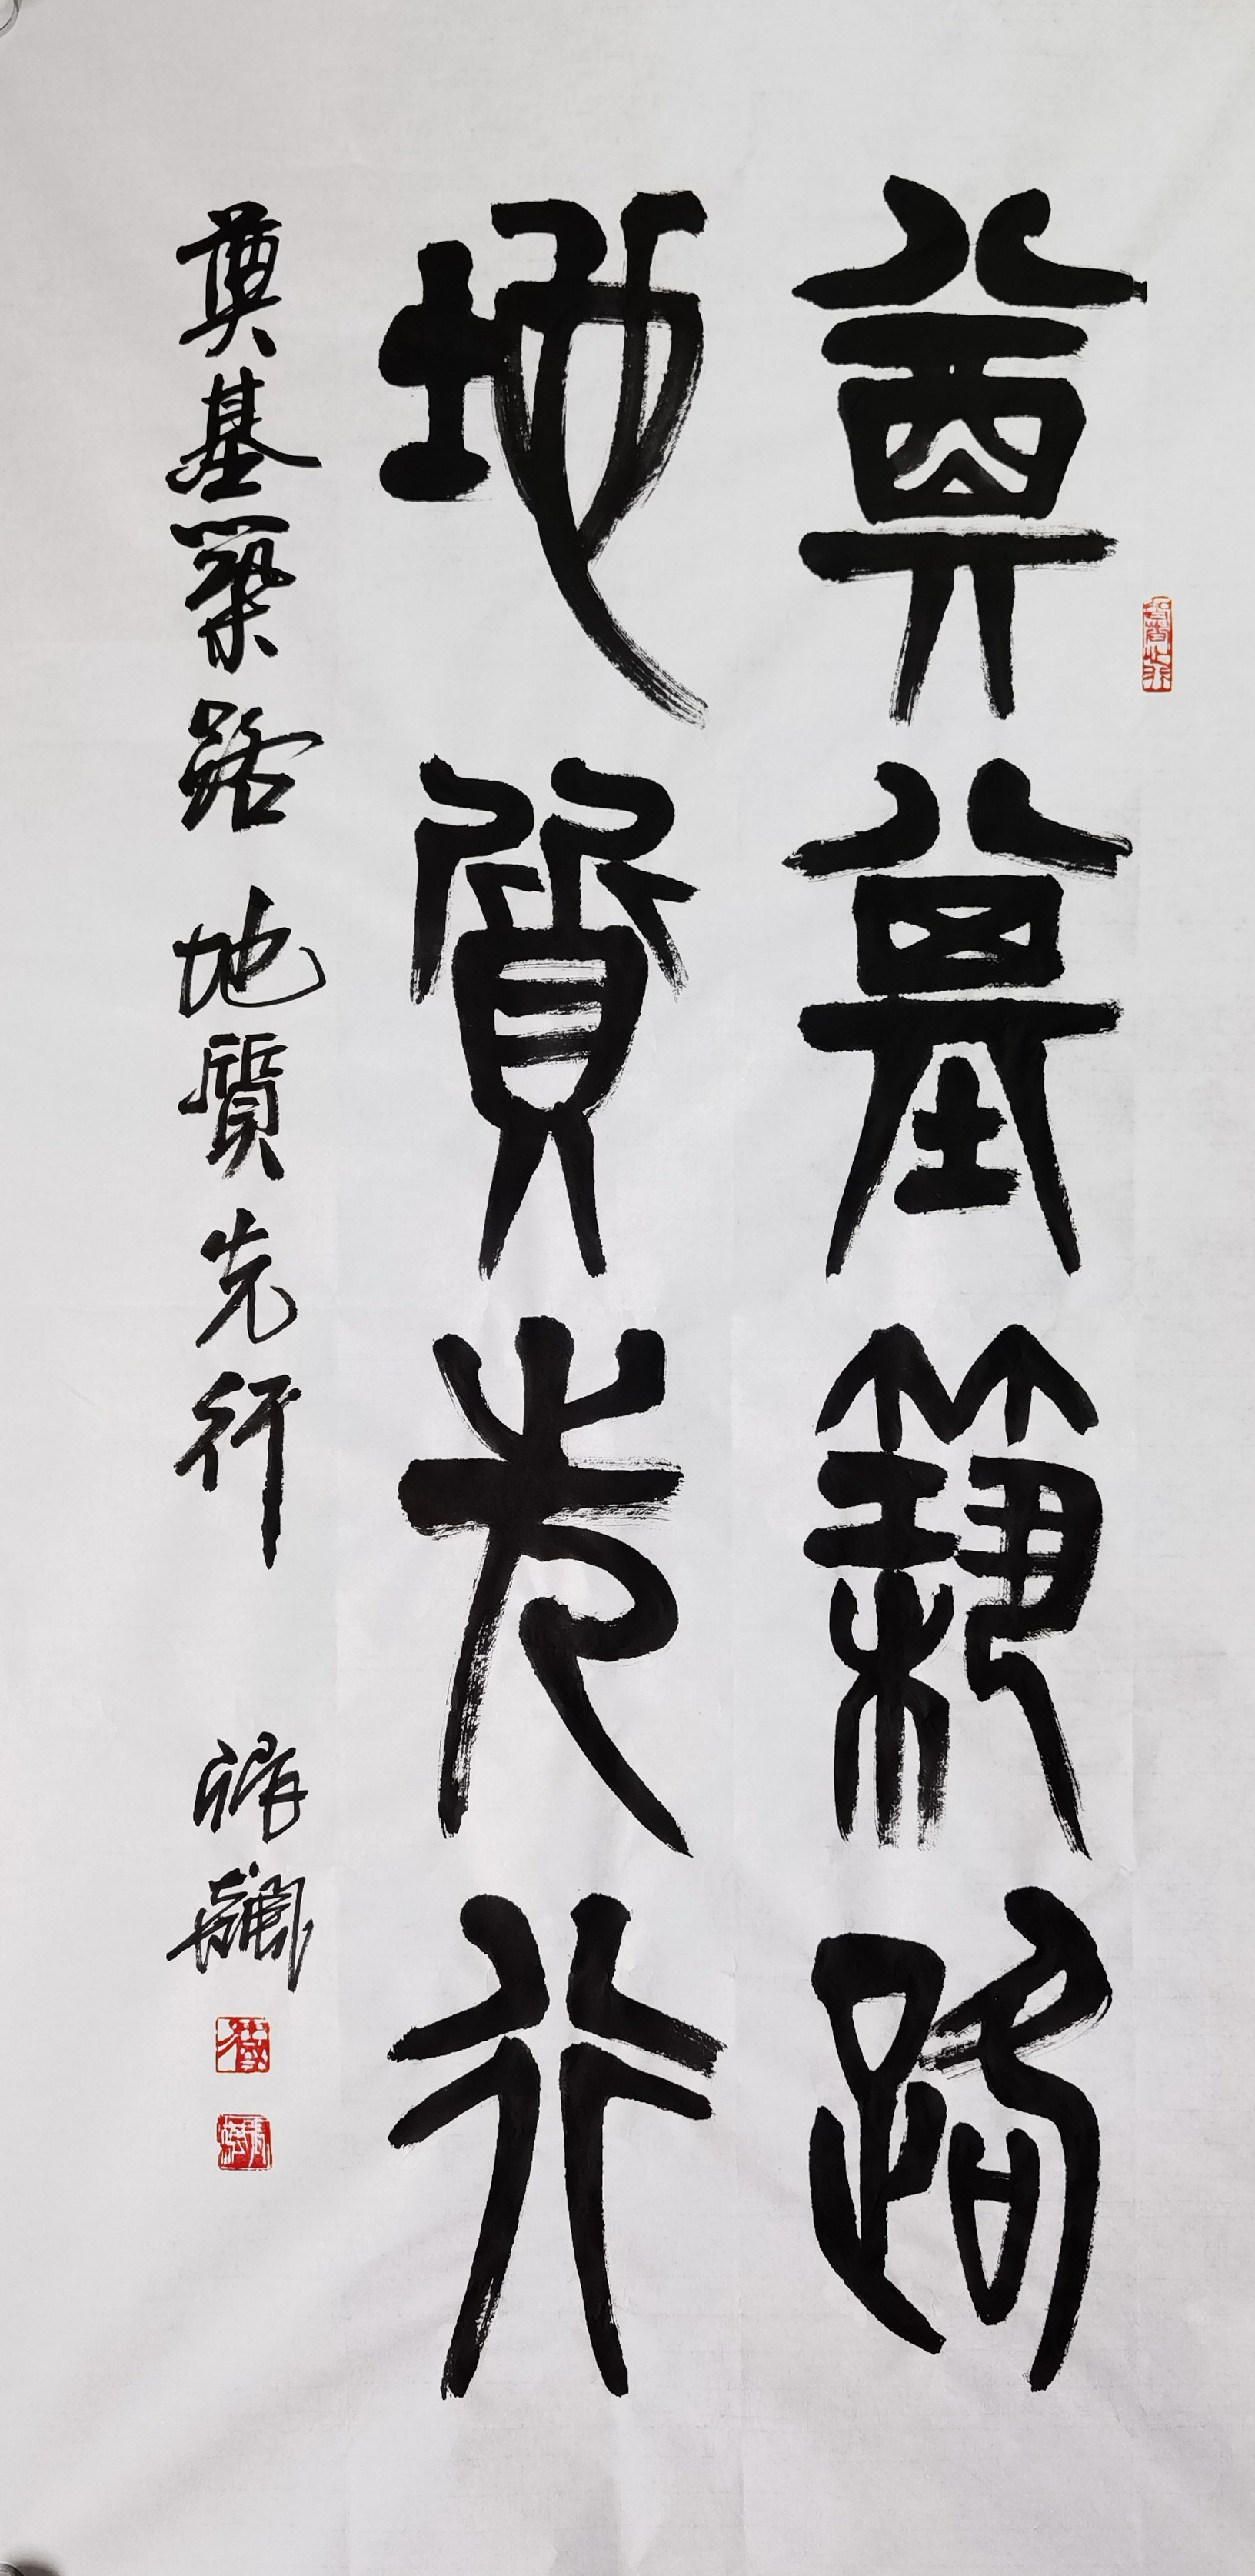 奠基築路
地質先行
奠基築路 地質先行